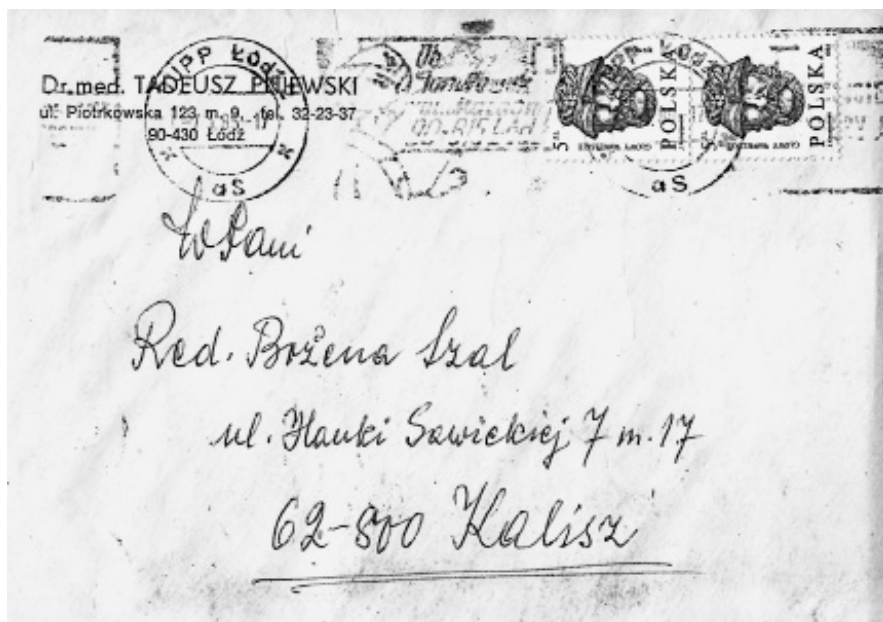 UPP Łódź
Dr. med. TADEUSZ PIJEWSKI
ul. Piotrkowska 123 m. 9, tel. 32-23-37
90-430 Łódź
aS
UPP Łódź
5 ZŁ
POLSKA
5 ZŁ
POLSKA
aS
WPani
Red. Bożena Szal
ul. Hanki Sawickiej 7 m. 17
62-800 Kalisz